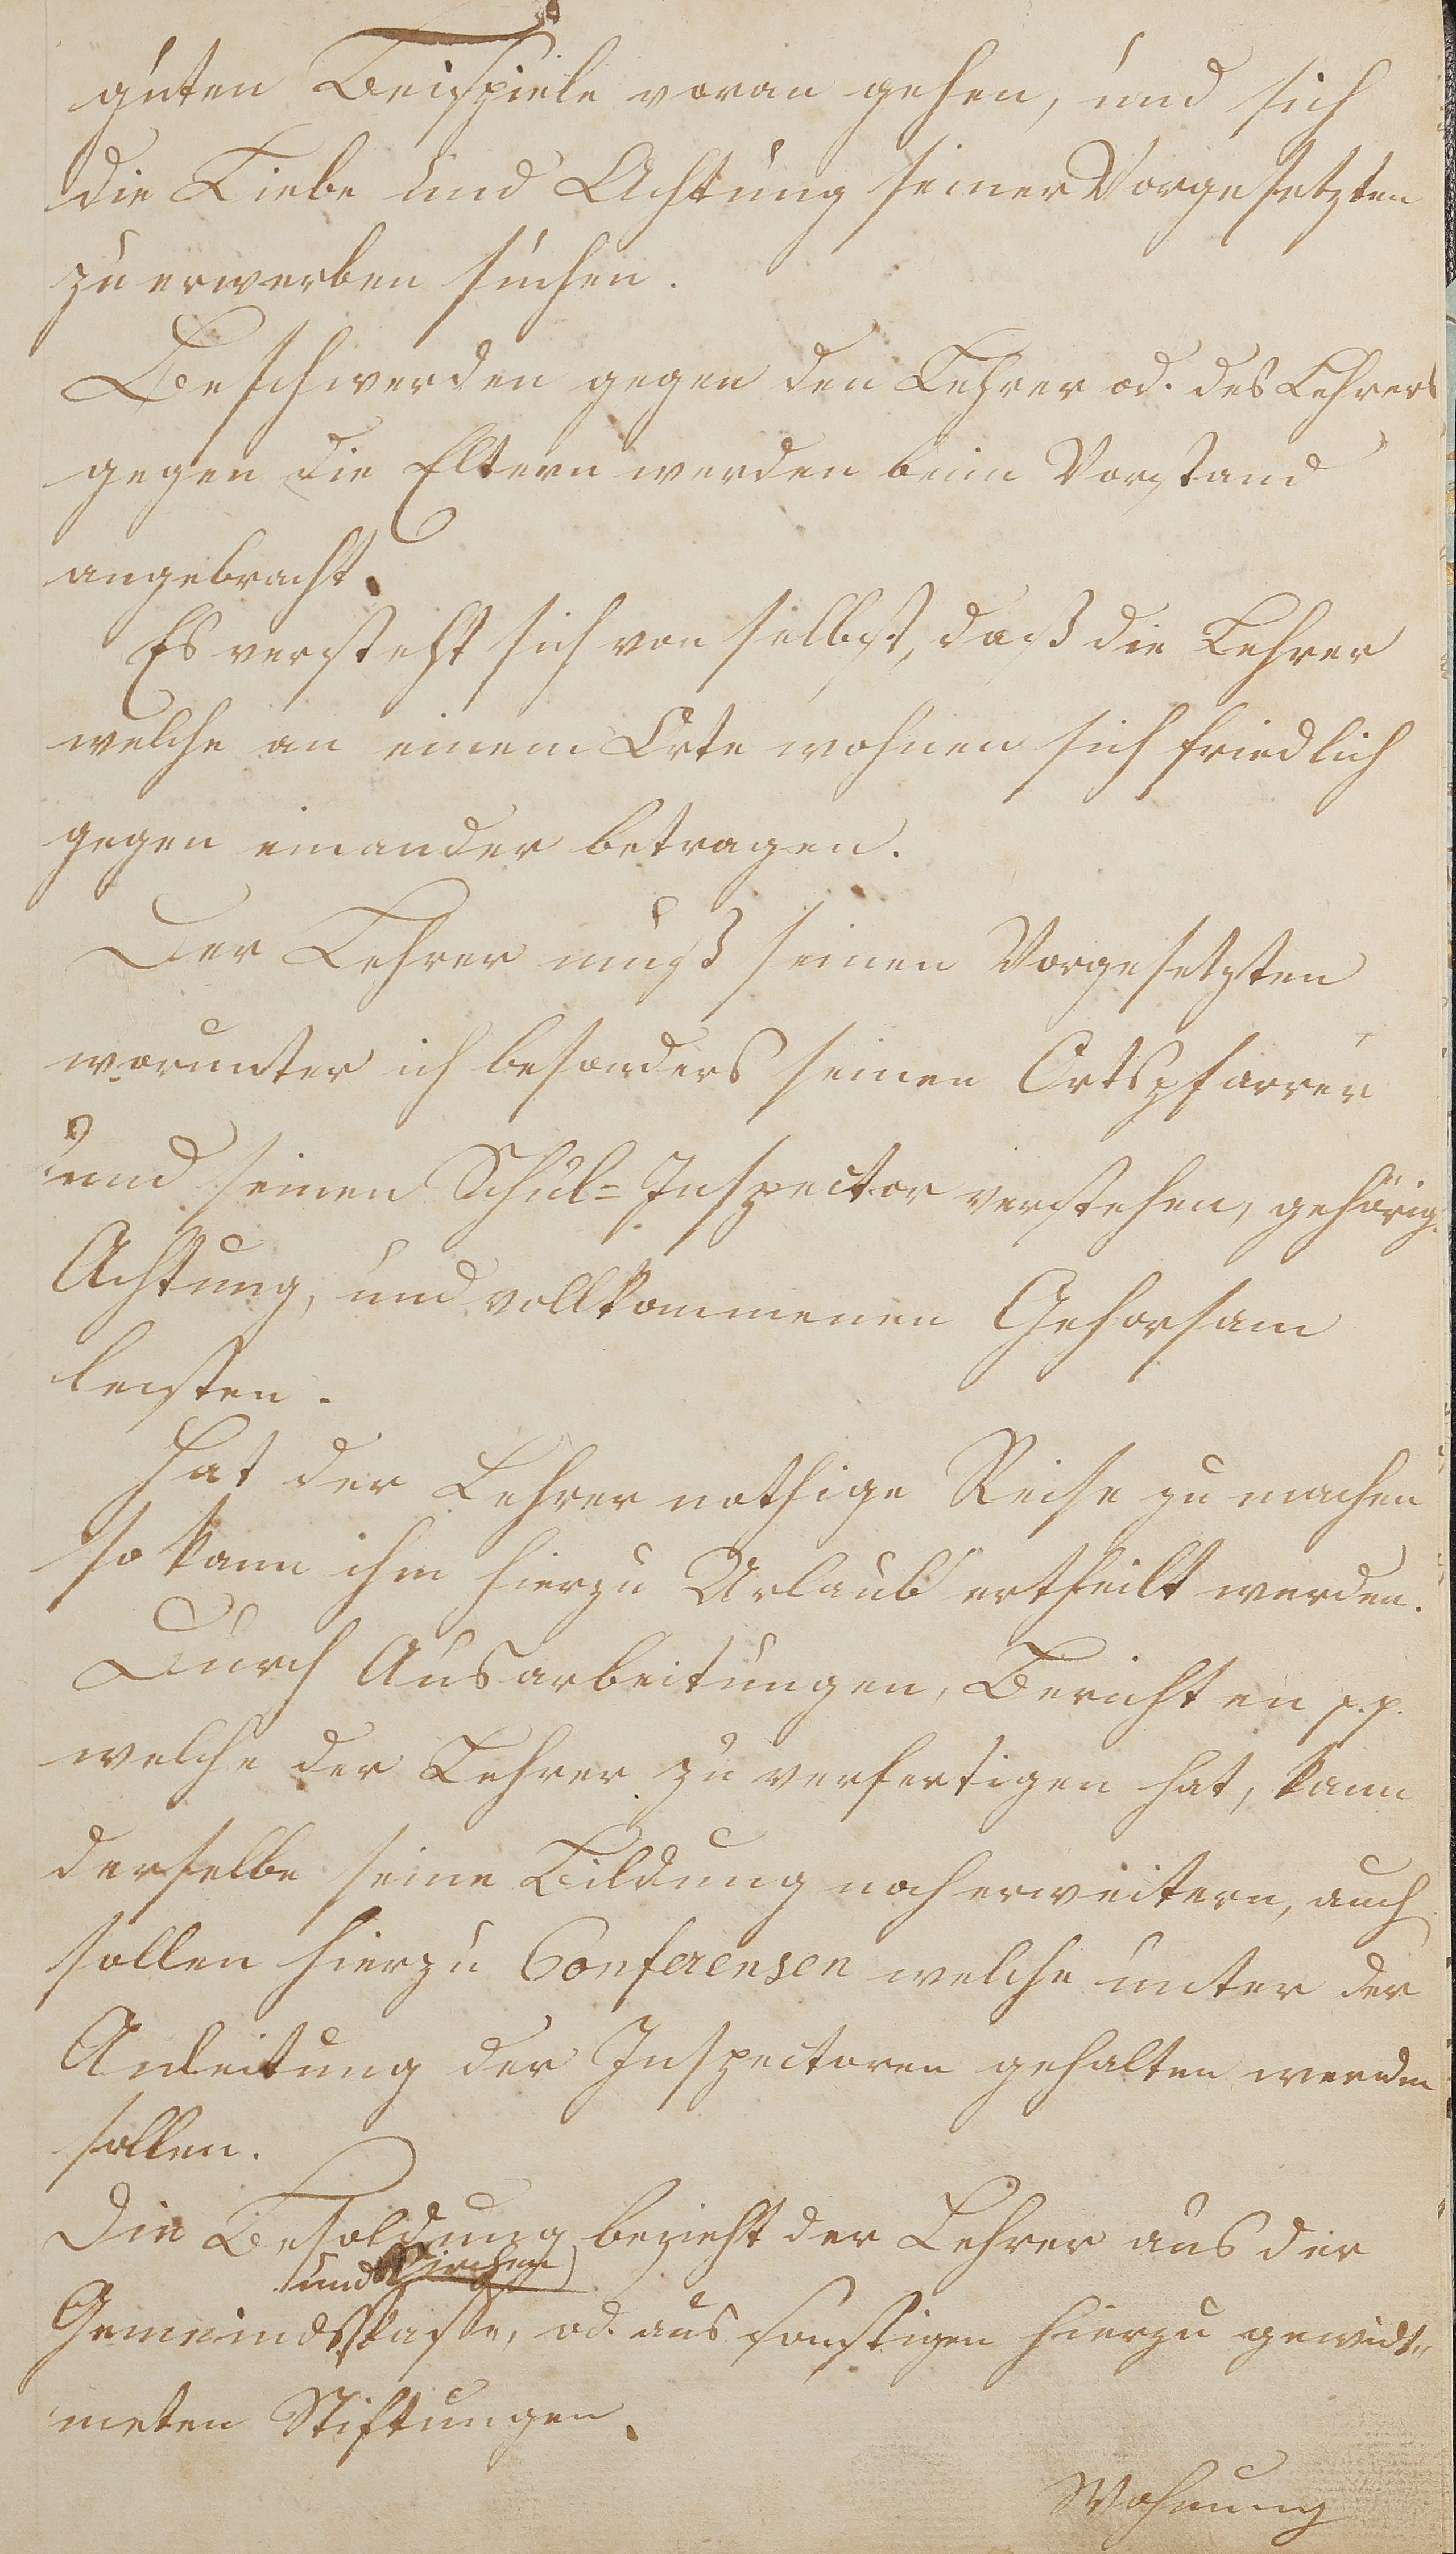 guten Beispiele voran gehen, und sich
die Liebe und Achtung seiner Vorgesetzten
zu erwerben suchen.
Beschwerden gegen den Lehrer od. des Lehrers
gegen die Eltern werden beim Vorstand
angebracht.
Es versteht sich von selbst, daß die Lehrer
welche an einem Orte wohnen sich friedlich
gegen einander betragen.
Der Lehrer muß seinen Vorgesetzten
worunter ich besonders seinen Ortspfarrer
und seinen Schul-Inspector verstehen, gehörig.
Achtung, und vollkommenen Gehorsam
leisten.
Hat der Lehrer nothige Reise zu machen
so kann ihm hierzu Urlaub ertheilt werden.
Durch Ausarbeitungen, Berichten p.p.
welche der Lehrer zu verfertigen hat, kann
derselbe seine Bildung noch erweitern, auch
sollen hierzu Conferensen welche unter der
Anleitung der Inspectoren gehalten werden
sollen.
Die Besoldung bezieht der Lehrer aus der
und Kirchen
Gemeindskasse, od. aus sonstigen hierzu gewidt„
meten Stiftungen.
Wohnung